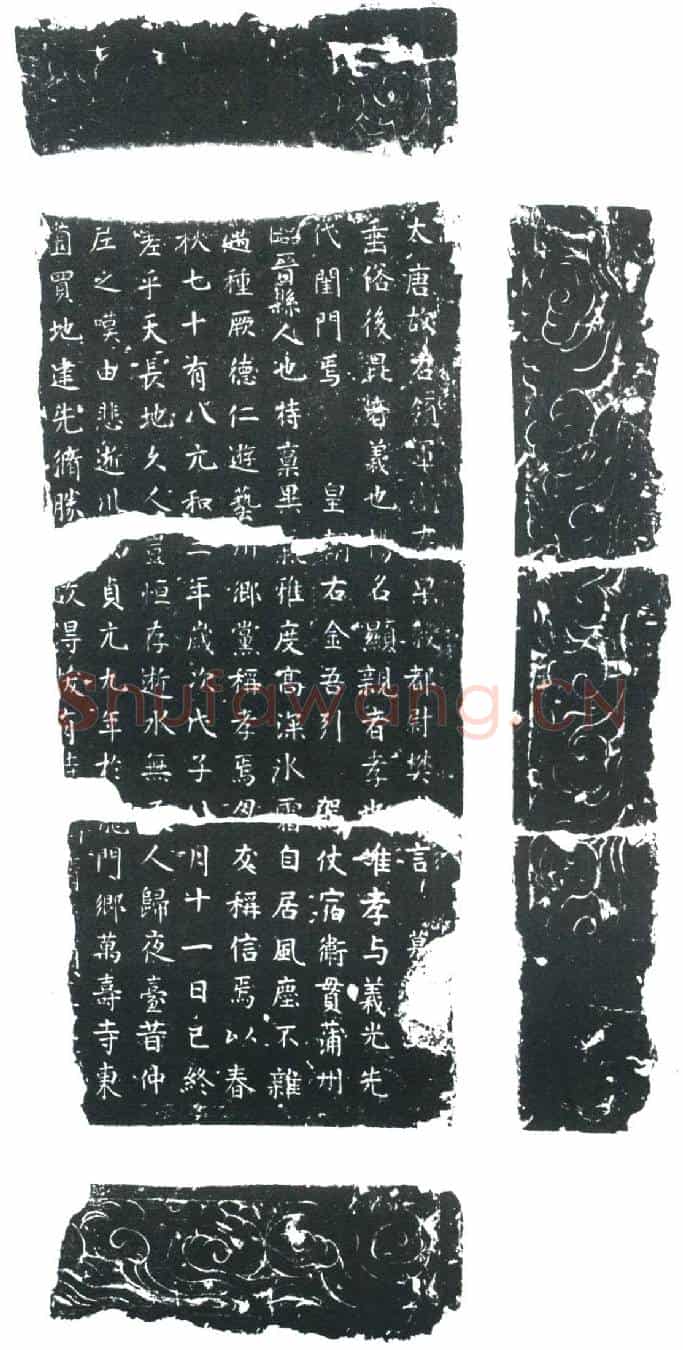 太唐故右領軍果毅都尉樊言墓
垂俗後昆者義也揚名顯親者孝也唯孝与義光先
代閨門焉 皇朝右金吾引駕仗宿衛貫蒲州
臨晉縣人也特稟異氣雅度高深氷霜自居風塵不雜
邁種厥德仁遊藝州鄉黨稱孝焉友稱信焉以春
秋七十有八元和三年歲次戊子八月十一日已終
差乎天長地久人豈恒存逝水無人歸夜臺昔仲
之嘆由悲逝川貞元九年於龍門鄉萬壽寺東
買地建先脩勝故得
Shufawang.CN